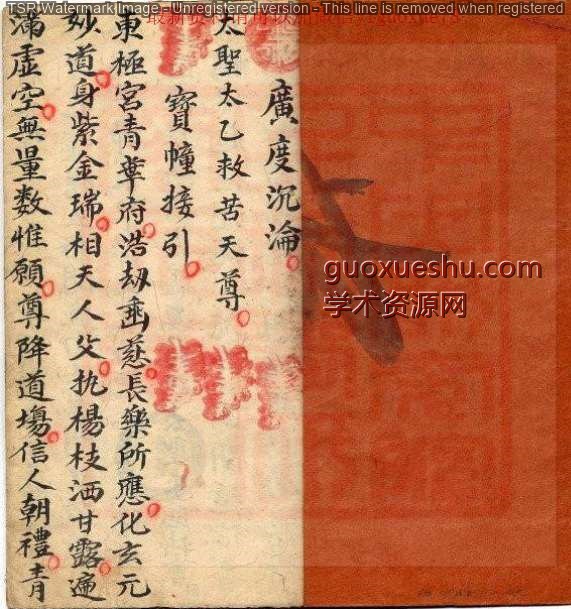 TSR Watermark Image - Unregistered version - This line is removed when registered
廣度沉淪
太聖太乙救苦天尊
寶幢接引
東極宮青華府浩劫垂慈長樂所應化玄元
妙道身紫金瑞相天人父执楊枝洒甘露遍
滿虛空無量数惟願尊降道塲信人朝禮青
guoxueshu.com
学术资源网